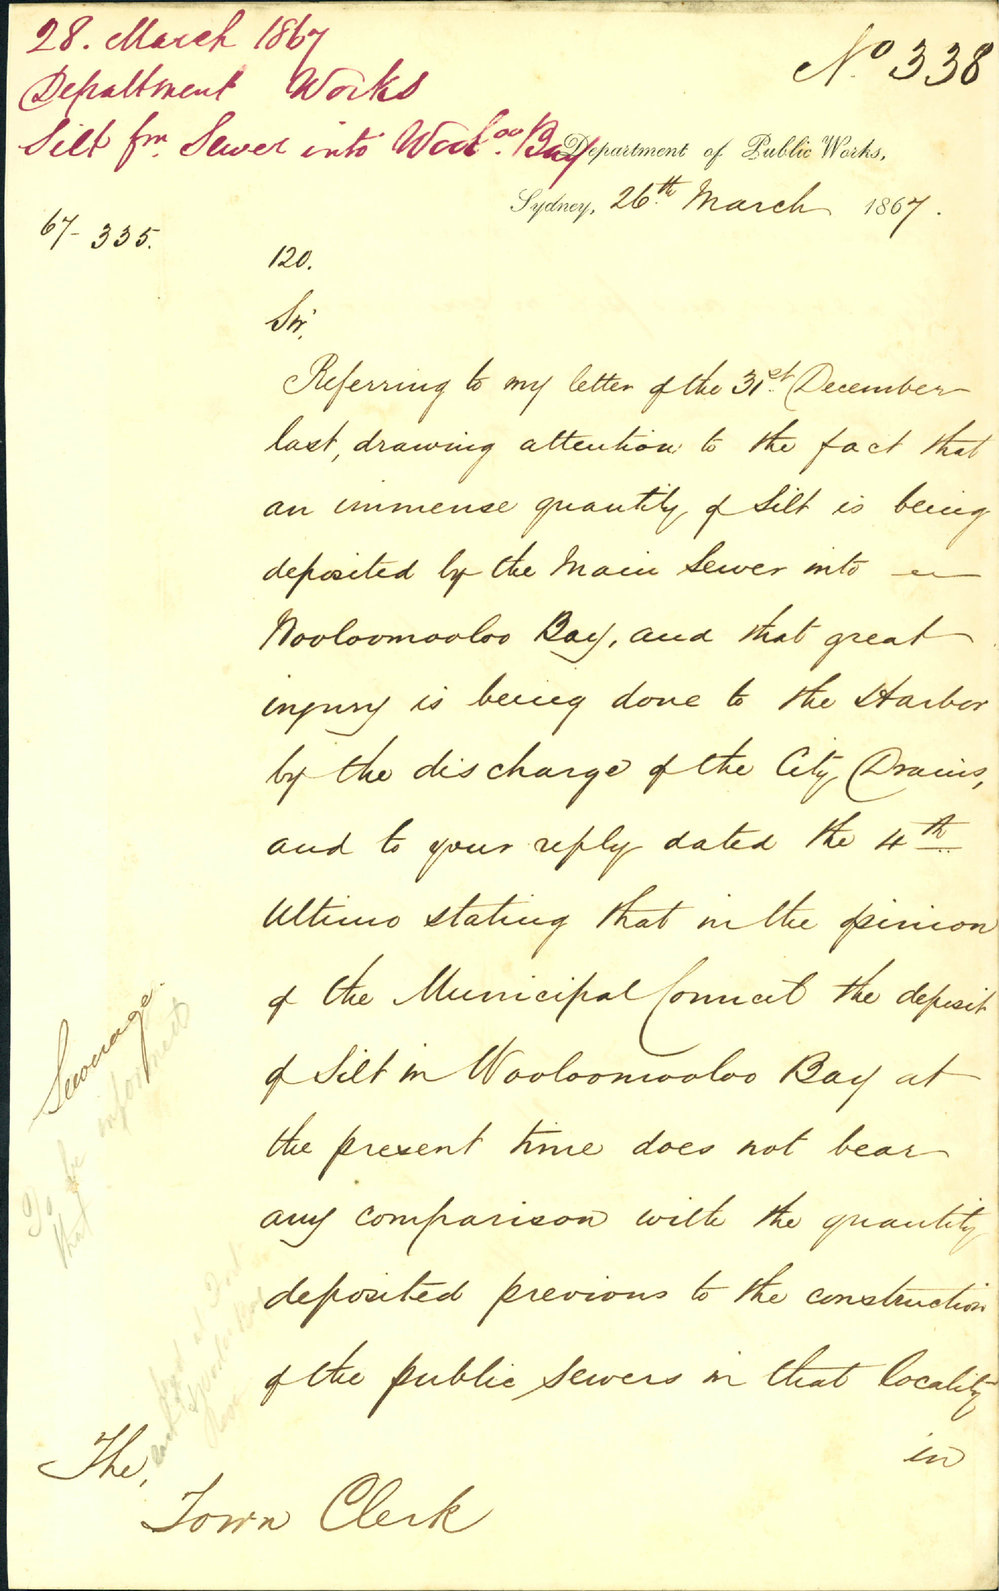 28. March 1867
No 338
Department Works
Silt fm. Sewer into Wool.oo Bay
Department of Public Works,
Sydney, 26th March 1867.
67-335.
120.
Sir,
Referring to my letter of the 31st December
last, drawing attention to the fact that
an immense quantity of Silt is being
deposited by the Main Sewer into
Wooloomooloo Bay, and that great
injury is being done to the Harbor
by the discharge of the City Drains,
and to your reply dated the 4th
Ultimo stating that in the opinion
of the Municipal Council the deposit
of Silt in Wooloomooloo Bay at
the present time does not bear
any comparison with the quantity
deposited previous to the construction
of the public Sewers in that locality
in
Sewerage.
To be informed
that
The,
Town Clerk